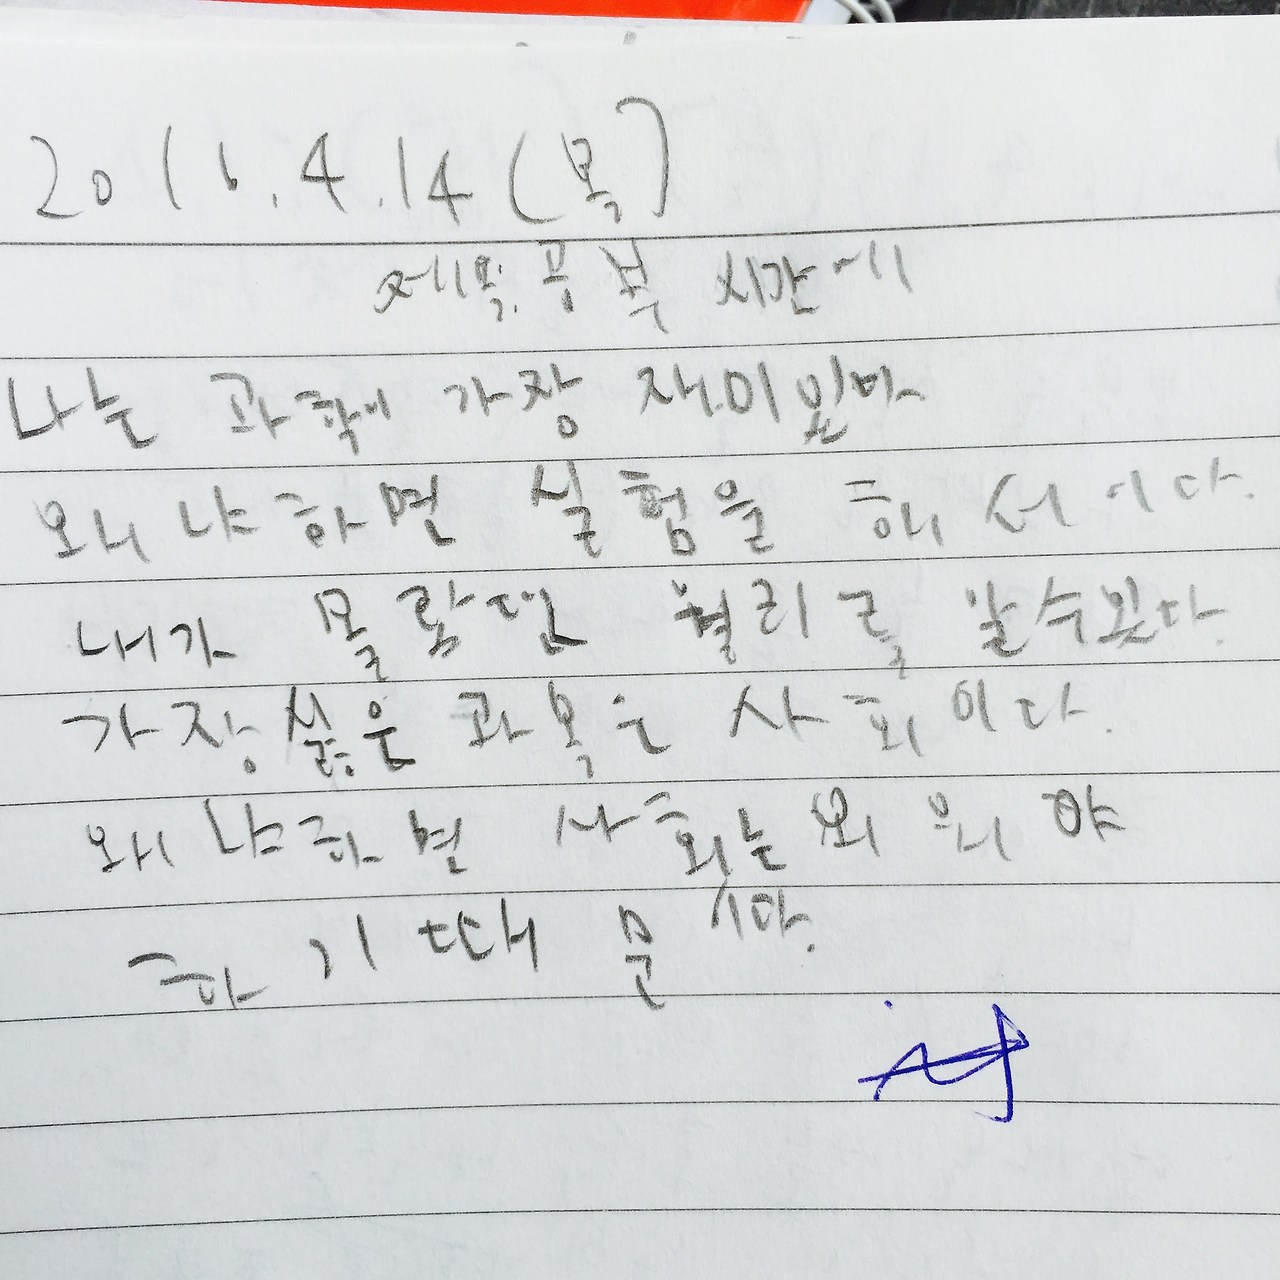 2016.4.14(목)
제목:공부 시간에
나는 과학에 가장 재미있다
왜냐하면 실험을 해서이다.
내가 몰랐던 원리를 알수있다.
가장싫은 과목은 사회이다.
왜냐하면 사회는 외워야
하기때문이다.